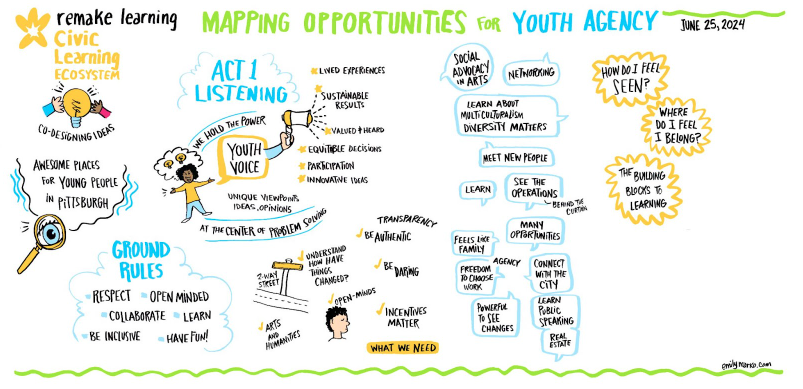 remake learning
Civic
Learning
ECOSYSTEM
CO-DESIGNING IDEAS
MAPPING OPPORTUNITIES FOR YOUTH AGENCY
JUNE 25, 2024
AWESOME PLACES
FOR YOUNG PEOPLE
IN PITTSBURGH
GROUND
RULES
RESPECT
OPEN MINDED
COLLABORATE
LEARN
BE INCLUSIVE
HAVE FUN!
ACT 1
LISTENING
WE HOLD THE POWER
YOUTH
VOICE
LIVED EXPERIENCES
SUSTAINABLE
RESULTS
VALUED + HEARD
EQUITIBLE DECISIONS
PARTICIPATION
INNOVATIVE IDEAS
UNIQUE VIEWPOINTS
IDEAS, OPINIONS
AT THE CENTER OF PROBLEM SOLVING
2-WAY
STREET
UNDERSTAND
HOW HAVE
THINGS
CHANGED?
OPEN-MINDS
ARTS
AND
HUMANITIES
TRANSPARENCY
BE AUTHENTIC
BE
DARING
INCENTIVES
MATTER
WHAT WE NEED
SOCIAL
ADVOCACY
IN ARTS
NETWORKING
LEARN ABOUT
MULTICULTURALISM
DIVERSITY MATTERS
MEET NEW PEOPLE
LEARN
SEE THE
OPERATIONS
BEHIND THE
CURTAIN
MANY
OPPORTUNITIES
FEELS LIKE
FAMILY
AGENCY
FREEDOM
TO CHOOSE
WORK
CONNECT
WITH THE
CITY
POWERFUL
TO SEE
CHANGES
LEARN
PUBLIC
SPEAKING
REAL
ESTATE
HOW DO I FEEL
SEEN?
WHERE
DO I FEEL
I BELONG?
THE BUILDING
BLOCKS TO
LEARNING
emilymarko.com